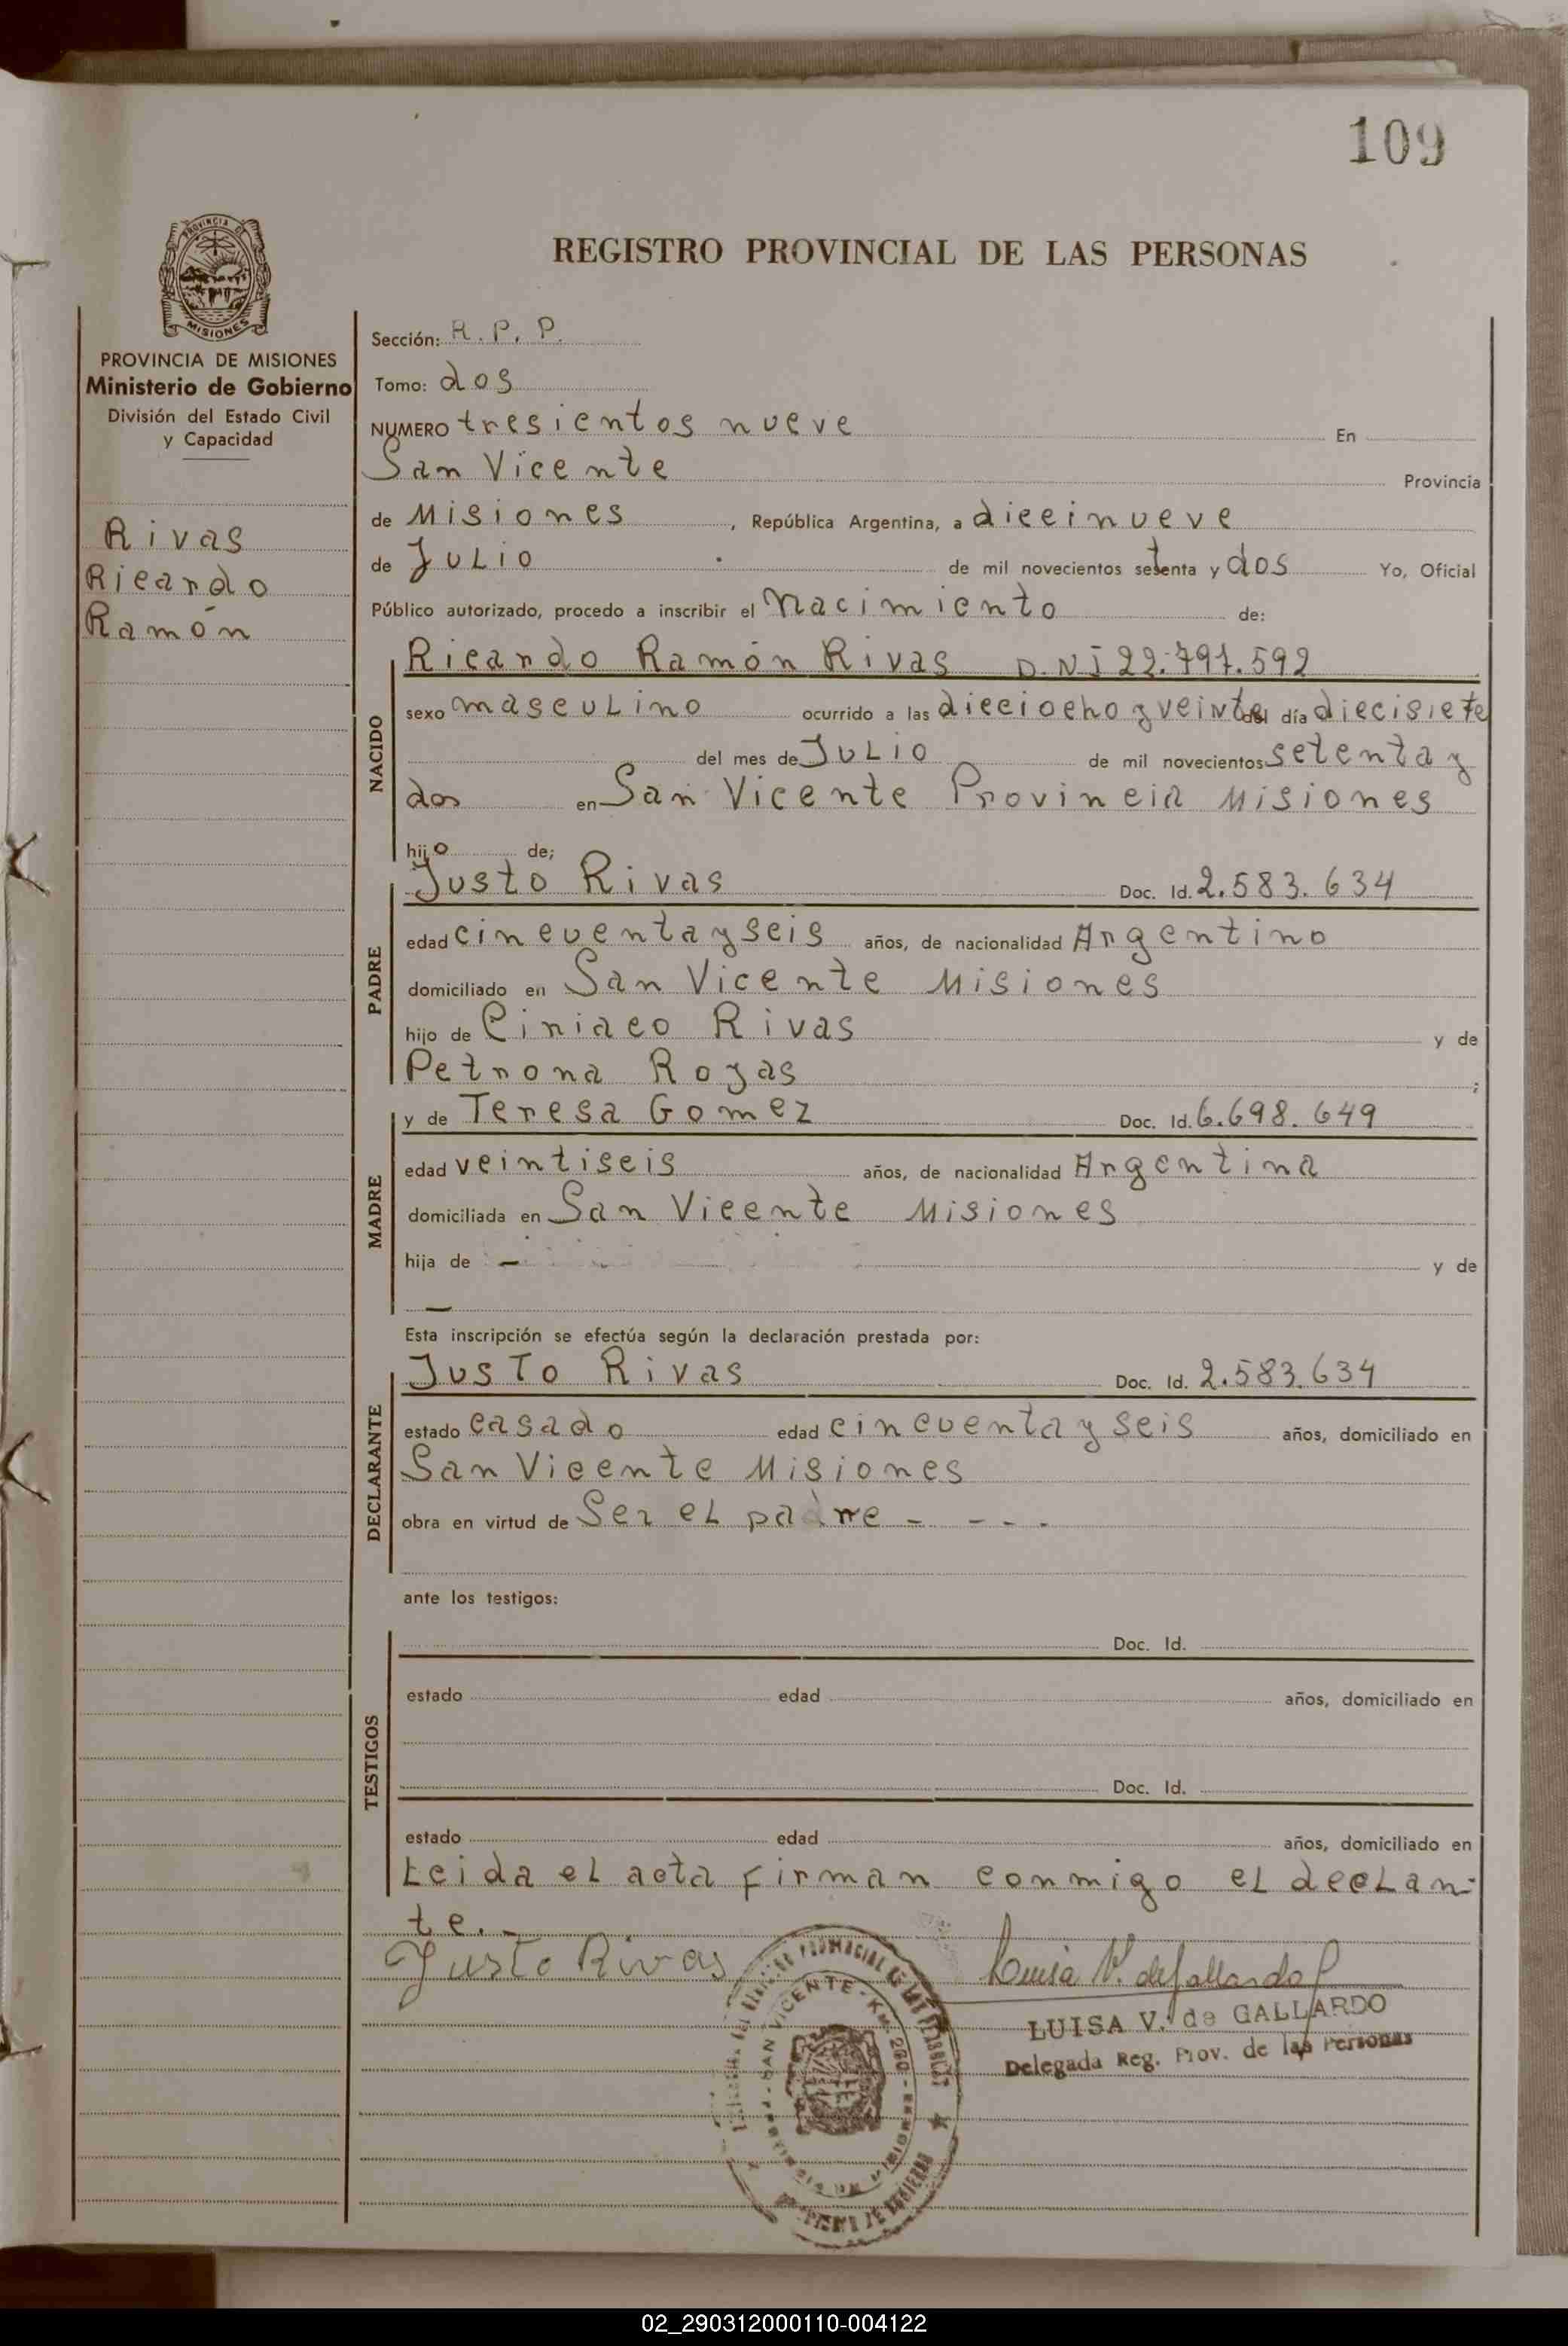 109
PROVINCIA DE MISIONES
REGISTRO PROVINCIAL DE LAS PERSONAS
PROVINCIA DE MISIONES
Ministerio de Gobierno
División del Estado Civil
y Capacidad
Rivas
Ricardo
Ramón
Sección: R. P. P.
Tomo: dos
NUMERO tresientos nueve En
San Vicente Provincia
de Misiones, República Argentina, a diecinueve
de Julio de mil novecientos setenta y dos Yo, Oficial
Público autorizado, procedo a inscribir el Nacimiento de:
NACIDO
Ricardo Ramón Rivas D.N.I 22.791.592
sexo masculino ocurrido a las dieciocho y veinte del día diecisiete
del mes de Julio de mil novecientos setenta y
dos en San Vicente Provincia Misiones
hijo de;
PADRE
Justo Rivas Doc. Id. 2.583.634
edad cincuenta y seis años, de nacionalidad Argentino
domiciliado en San Vicente Misiones
hijo de Ciriaco Rivas y de
Petrona Rojas ;
MADRE
y de Teresa Gomez Doc. Id. 6.698.649
edad veintiseis años, de nacionalidad Argentina
domiciliada en San Vicente Misiones
hija de — y de
—
Esta inscripción se efectúa según la declaración prestada por:
DECLARANTE
Justo Rivas Doc. Id. 2.583.634
estado casado edad cincuenta y seis años, domiciliado en
San Vicente Misiones
obra en virtud de Ser el padre - - - -
ante los testigos:
TESTIGOS
Doc. Id.
estado edad años, domiciliado en
Doc. Id.
estado edad años, domiciliado en
Leida el acta firman conmigo el declan-
te.-
Justo Rivas
Luisa V. de Gallardo
LUISA V. de GALLARDO
Delegada Reg. Prov. de las Personas
SAN VICENTE - KM. 260 - MISIONES
02_290312000110-004122